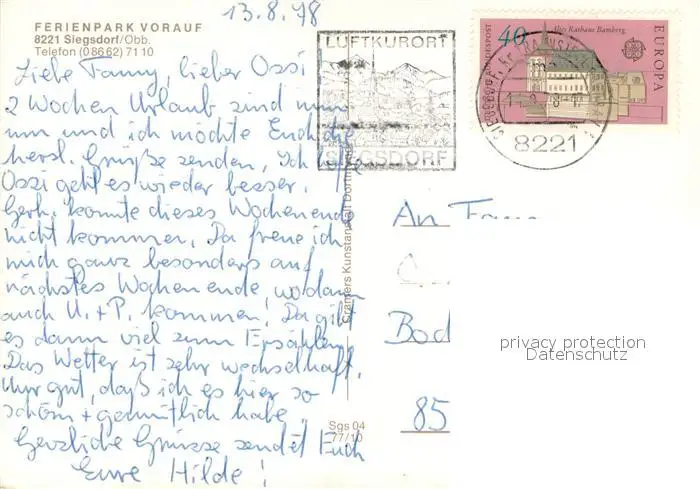 13.8.78
FERIENPARK VORAUF
8221 Siegsdorf/Obb.
Telefon (08662) 7110
Liebe Fanny, lieber Ossi
2 Wochen Urlaub sind nun
um und ich möchte Euch die
herzl. Grüße senden, Ich hoffe
Ossi geht es wieder besser.
Gerh. konnte dieses Wochenende
nicht kommen. Da freue ich
mich ganz besonders auf
nächstes Wochenende, wo dann
auch U. + P. kommen. Da gibt
es dann viel zum Erzählen.
Das Wetter ist sehr wechselhaft.
Nur gut, daß ich es hier so
schön + gemütlich habe.
Herzliche Grüsse sendet Euch
Eure Hilde!
LUFTKURORT
SIEGSDORF
40
Altes Rathaus Bamberg
EUROPA
DEUTSCHE BUNDESPOST
8221
Cramers Kunstanstalt Dortmund
Sgs 04
77/10
An
Bad
85
privacy protection
Datenschutz